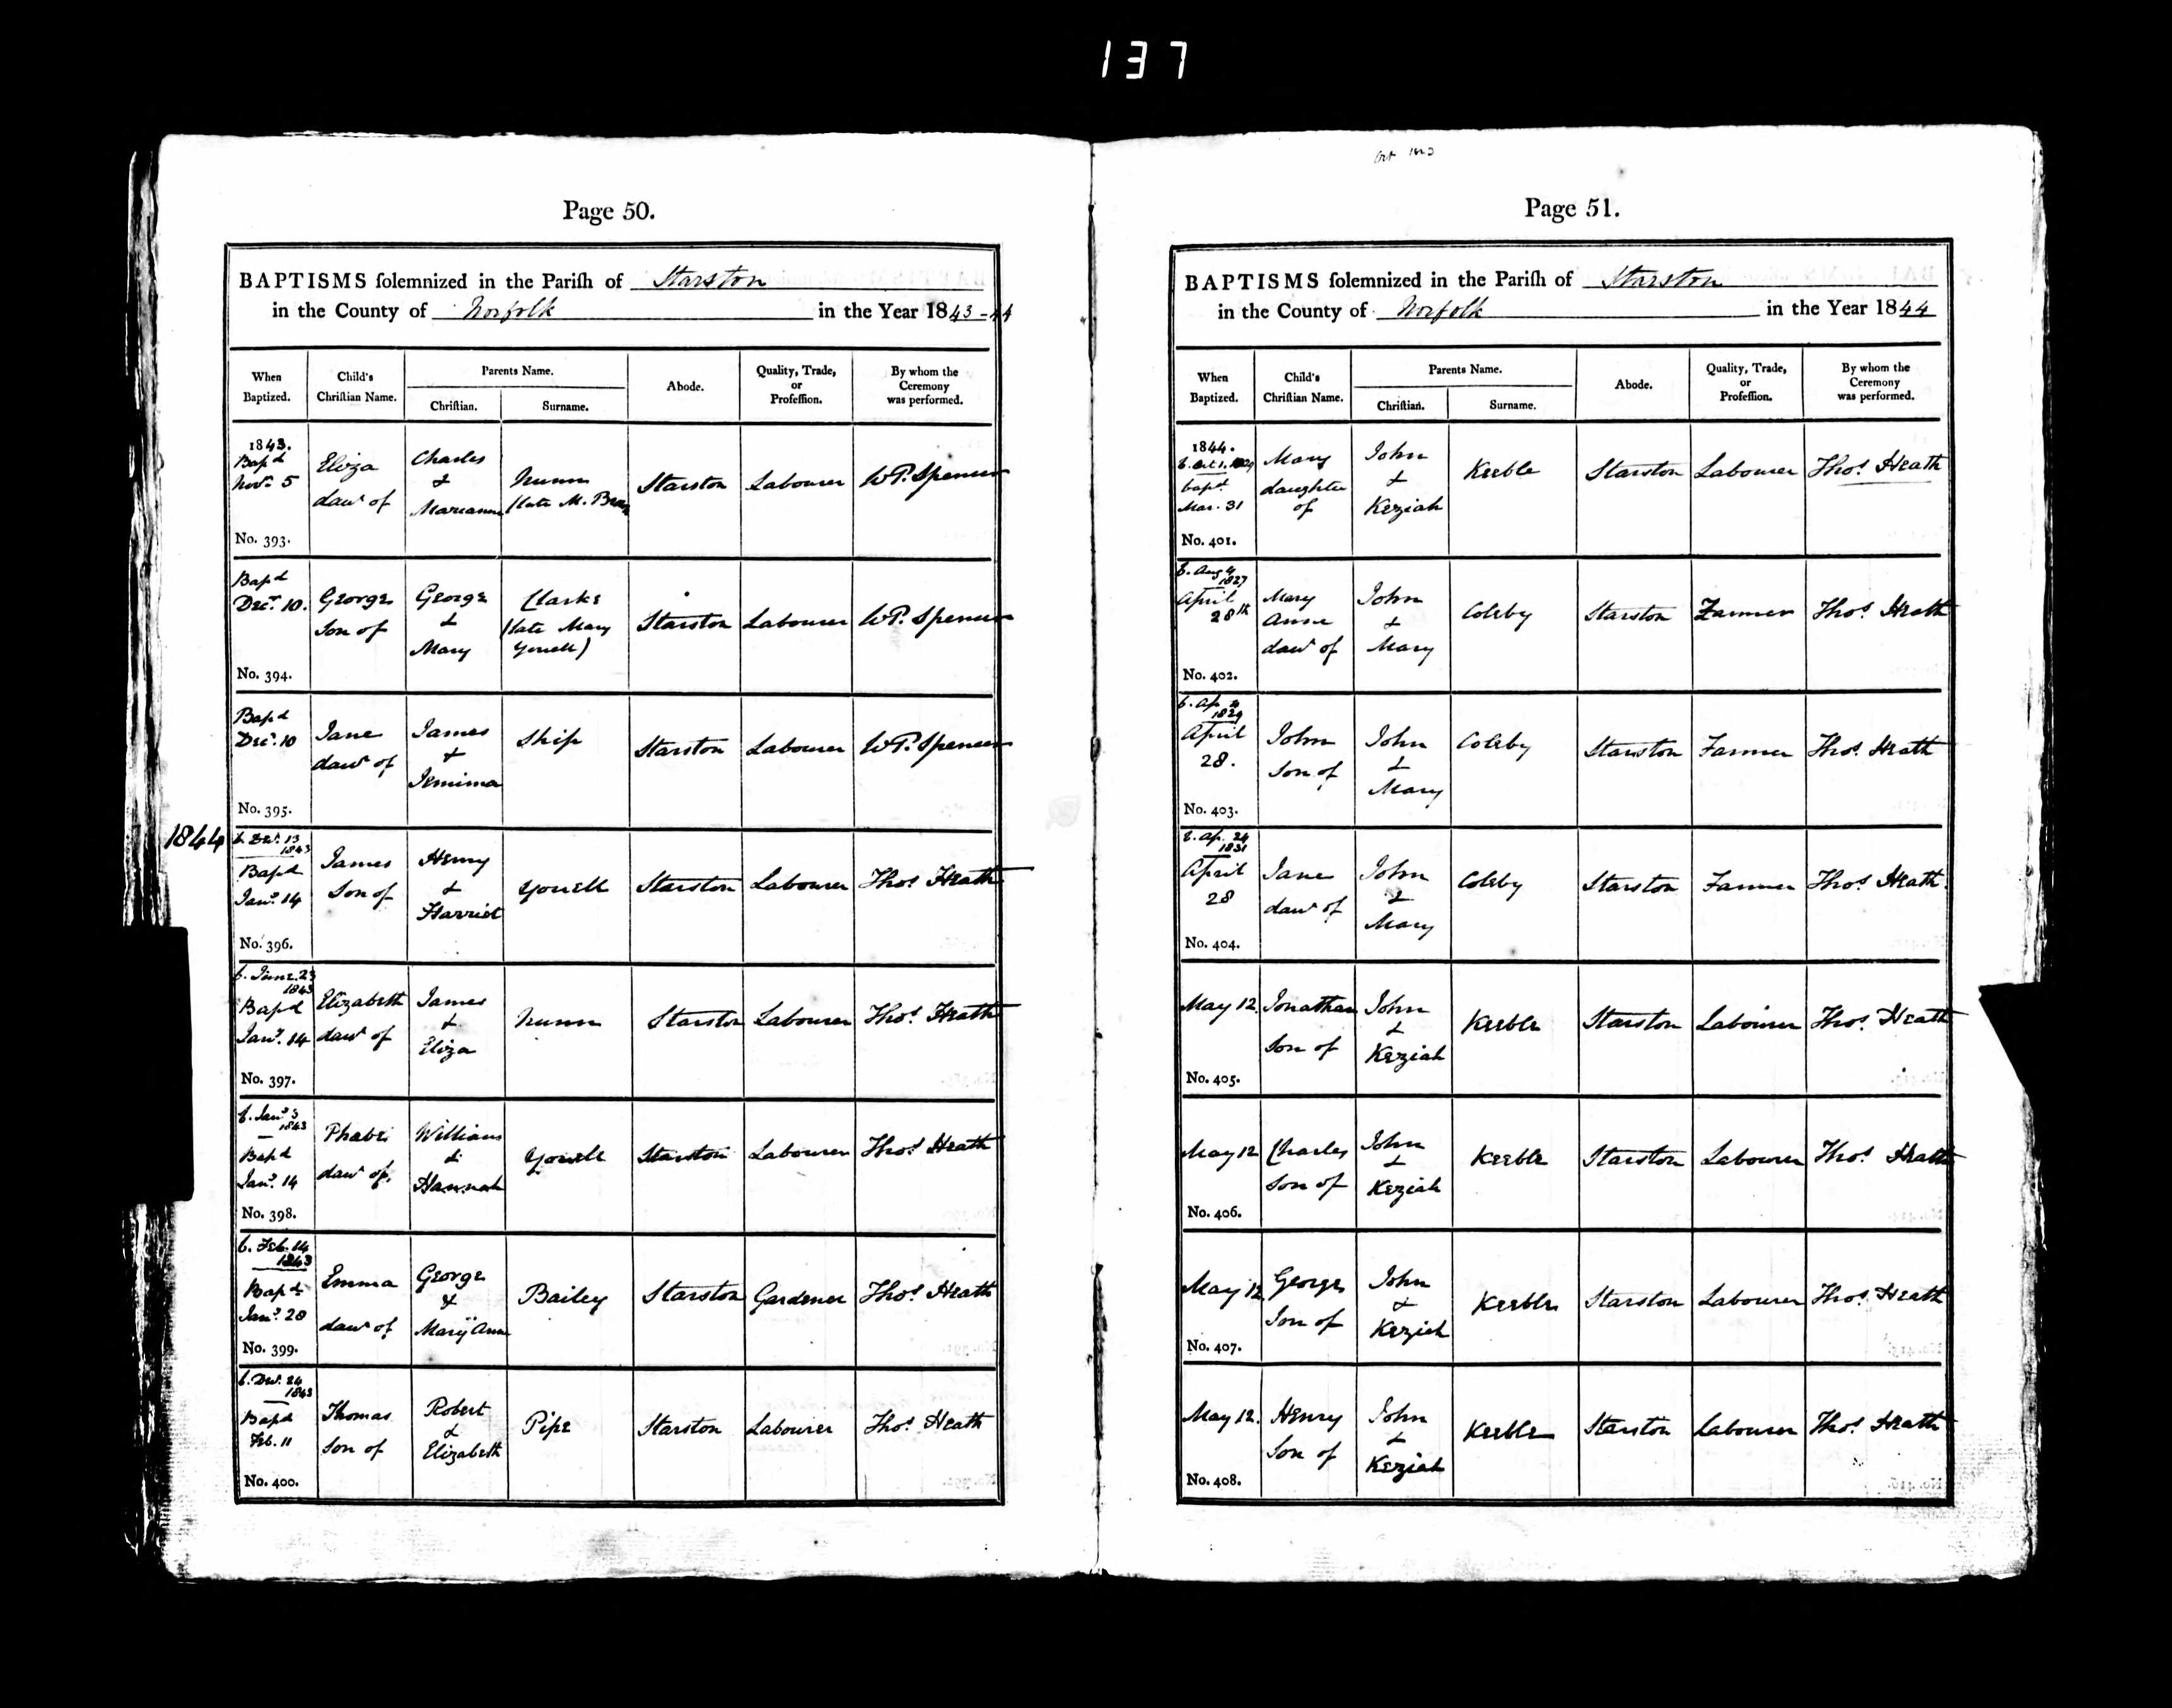 137
Page 50.
BAPTISMS solemnized in the Parish of Starston
in the County of Norfolk in the Year 1843-44
When Baptized. Child's Christian Name. Parents Name. Christian. Surname. Abode. Quality, Trade, or Profession. By whom the Ceremony was performed.
1843. Bapd Novr 5 No. 393. Eliza dawr of Charles & Marianne Nunn (late M. Abode Starston Labourer W P. Spencer
Bapd Decr 10. No. 394. George Son of George & Mary Clarke (late Mary Youell) Starston Labourer W P. Spencer
Bapd Decr. 10 No. 395. Jane dawr of James & Jemima Ship Starston Labourer W P. Spencer
1844
b. Decr. 13 1843 Bapd Jany. 14 No. 396. James Son of Henry & Harriet Youell Starston Labourer Thos Heath
b. June. 23 1843 Bapd Jany. 14 No. 397. Elizabeth dawr of James & Eliza Nunn Starston Labourer Thos. Heath
b. Jany 3 1843 Bapd Jany. 14 No. 398. Phabe dawr of William & Hannah Youell Starston Labourer Thos Heath
b. Feb. 14 1843 Bapd Jany. 28 No. 399. Emma dawr of George & Mary Ann Bailey Starston Gardener Thos. Heath
b. Decr. 24 1843 Bapd Feb. 11 No. 400. Thomas Son of Robert & Elizabeth Pipe Starston Labourer Thos. Heath
Page 51.
BAPTISMS solemnized in the Parish of Starston
in the County of Norfolk in the Year 1844
When Baptized. Child's Christian Name. Parents Name. Christian. Surname. Abode. Quality, Trade, or Profession. By whom the Ceremony was performed.
1844. b. Oct 1. bapd. Mar. 31 No. 401. Mary daughter of John & Keziah Keeble Starston Labourer Thos. Heath
b. Aug 4 1827 April 28th No. 402. Mary Anne dawr of John & Mary Coleby Starston Farmer Thos. Heath
b. Ap. 1829 April 28. No. 403. John Son of John & Mary Coleby Starston Farmer Thos. Heath
b. Ap. 24 1831 April 28 No. 404. Jane dawr of John & Mary Coleby Starston Farmer Thos. Heath.
May 12. No. 405. Jonathan Son of John & Keziah Keeble Starston Labourer Thos. Heath
May 12 No. 406. Charles Son of John & Keziah Keeble Starston Labourer Thos. Heath
May 12. No. 407. George Son of John & Keziah Keeble Starston Labourer Thos. Heath
May 12. No. 408. Henry Son of John & Keziah Keeble Starston Labourer Thos. Heath